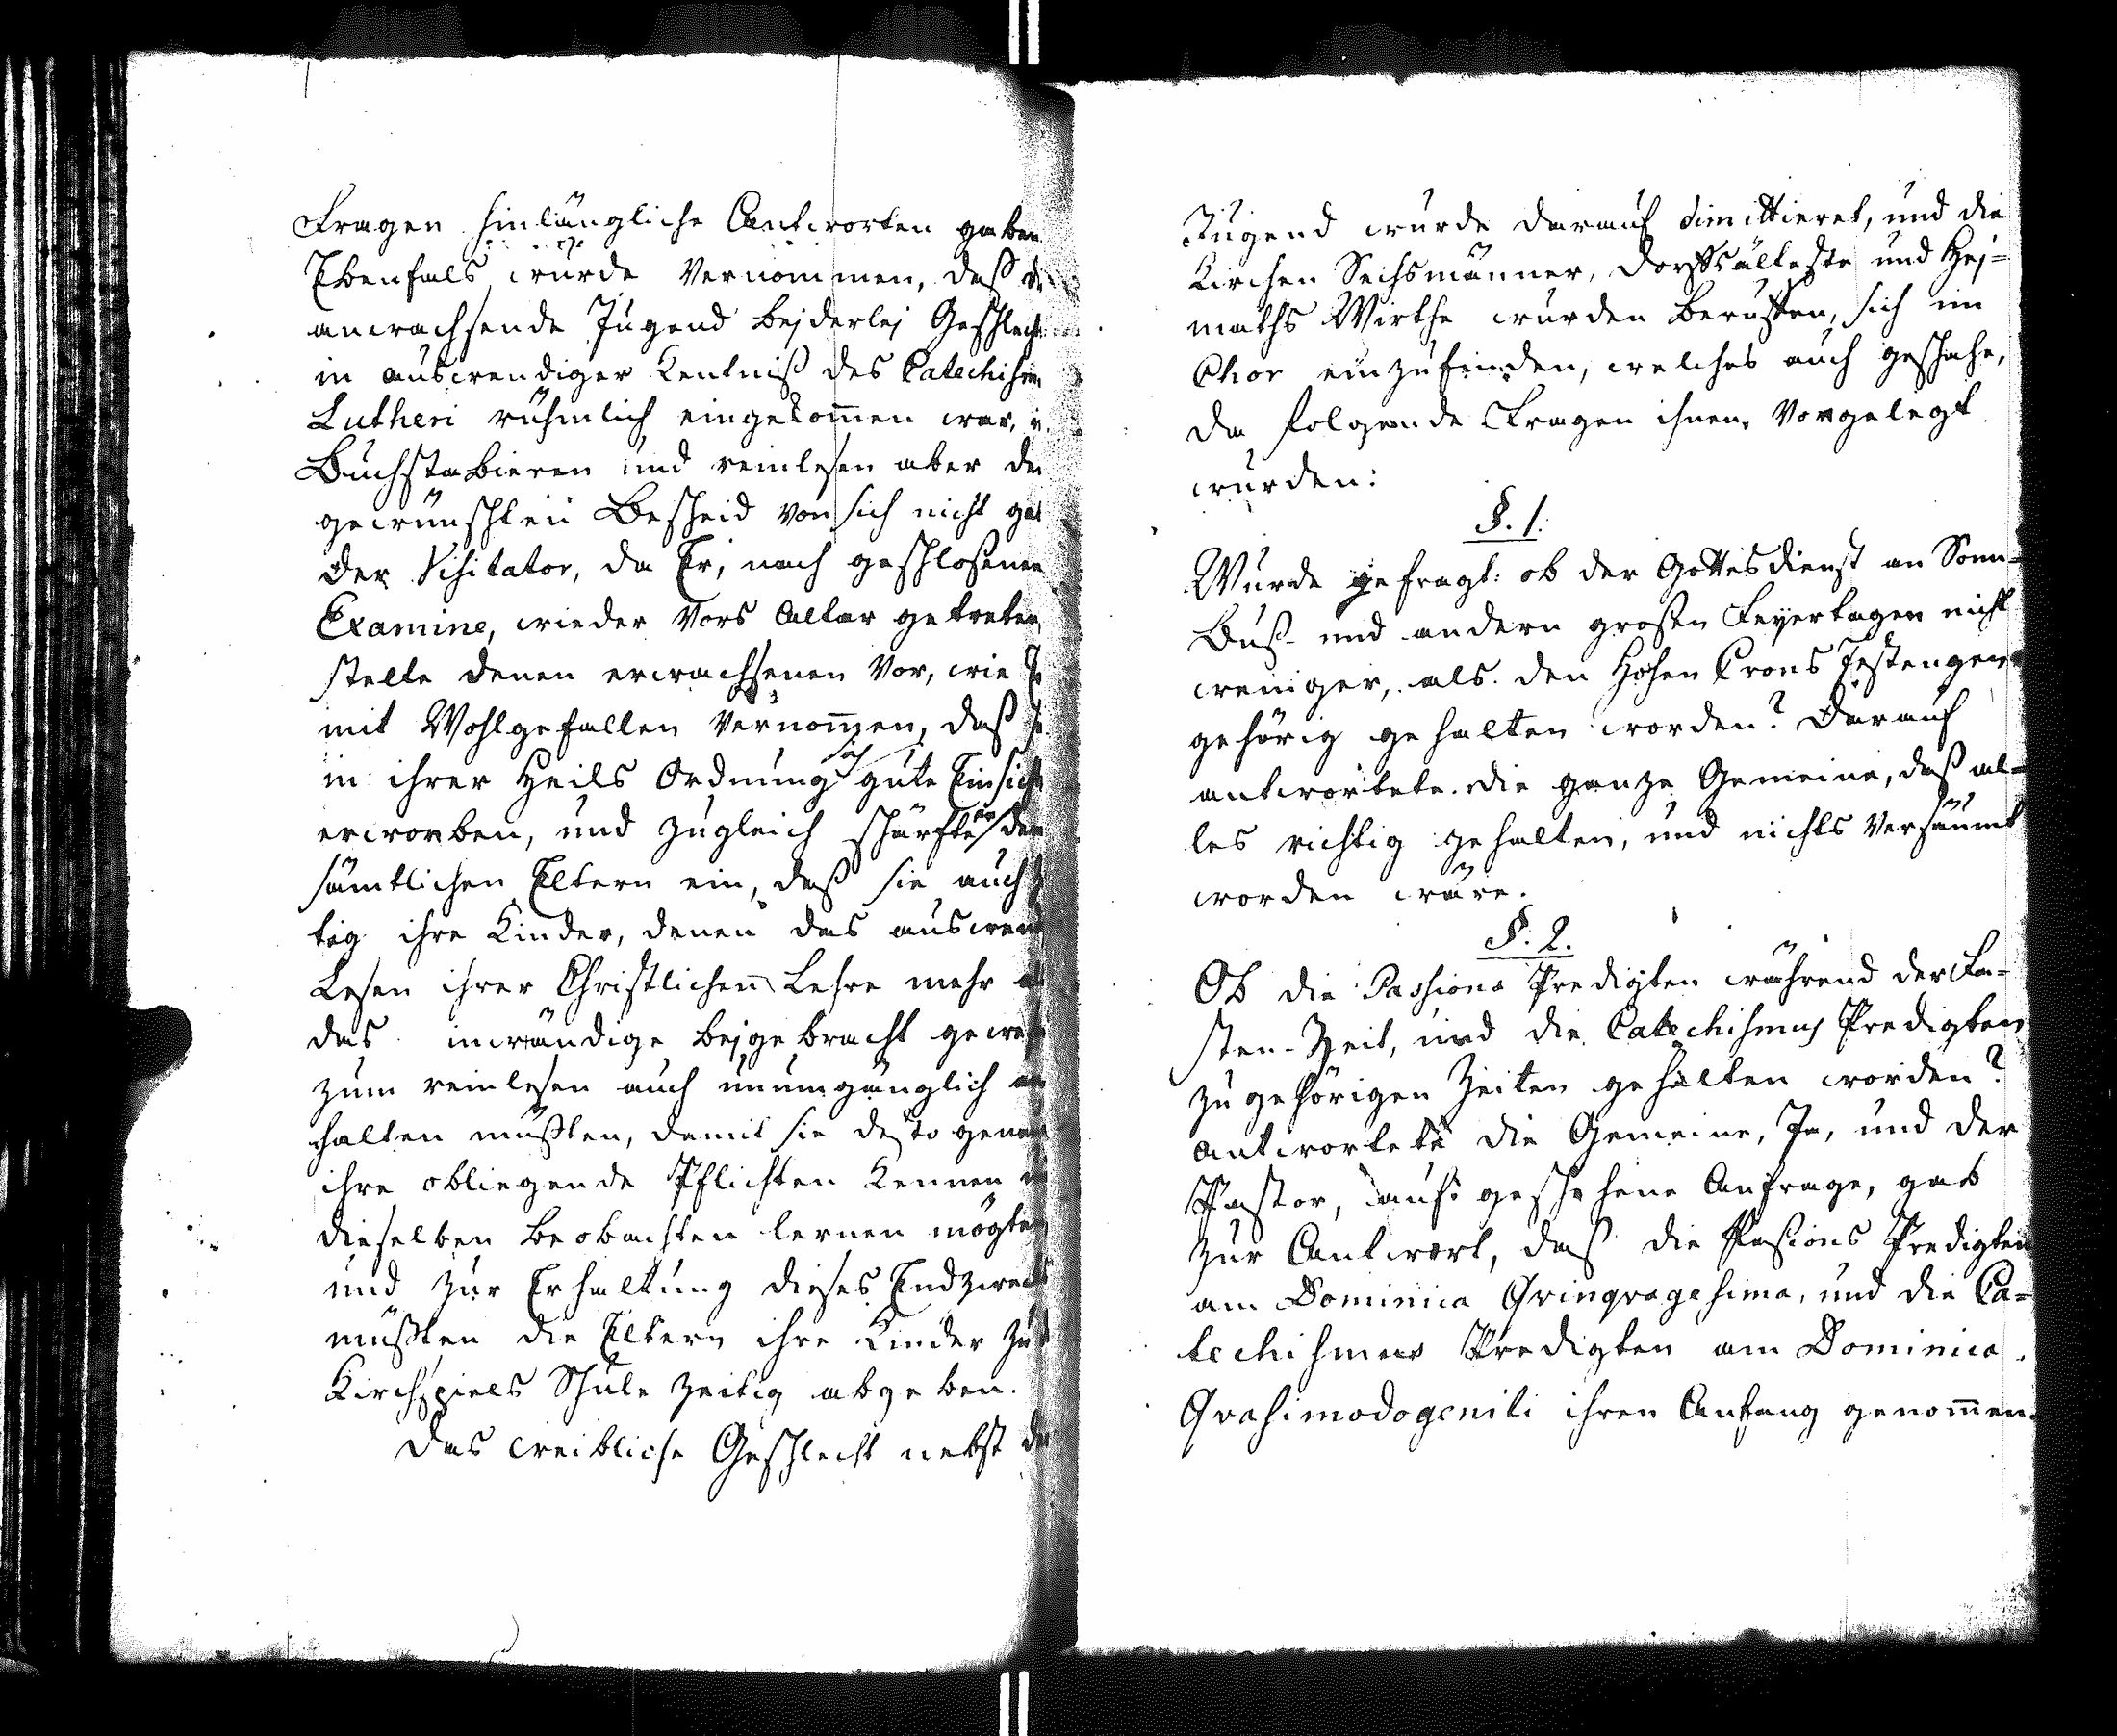 Fragen hinlängliche Antworten gaben
Ebenfals wurde vernommen, daß d
anwachsende Jugend beyderley Geschlech
in auswendiger Kentniß des Catechism
Lutheri rühmlich eingekom̄en war, i
Buchstabieren und reinlesen aber de
gewünschten Bescheid von sich nicht gab
der Visitator, da Er, nach geschloßenen
Examine, wieder vors Altar getreten,
stelte denen erwachsenen vor, wie E
mit Wohlgefallen vernom̄en, daß S
in ihrer Heils Ordnung sich gute Einsicht
erworben, und zugleich schärfte er den
sämtlichen Eltern ein, daß sie auch
tig ihre Kinder, denen das auswend
Lesen ihrer Christlichen Lehre mehr als
das inwändige beygebracht gewes
zum reinlesen auch unumgänglich an
halten müßten, damit sie desto genau
ihre obliegende Pflichten kennen u
dieselben beobachten lernen mögten
und zur Erhaltung dieses Endzwecks
müßten die Eltern ihre Kinder zu
Kirchspiels Schule zeitig abgeben.
Das weibliche Geschlecht nebst der
Jugend wurde darauf dimittieret, und die
Kirchen Sechsmänner, Dorfsälteste und Hej-
maths Wirthe wurden beruffen, sich im
Chor einzufinden, welches auch geschahe,
da folgende Fragen ihnen vorgelegt
wurden:
§. 1.
Wurde gefragt: ob der Gottesdienst an Sonn-
Buß- und andern großen Feyertagen nicht
weniger, als den Hohen Crons Festen gewe
gehörig gehalten worden? Darauf
antwortete die ganze Gemeine, daß al-
les richtig gehalten, und nichts versäumt
worden wäre.
§. 2.
Ob die Passions Predigten während der Fa-
sten-Zeit, und die Catechismus Predigten
zu gehörigen Zeiten gehalten worden?
antwortete die Gemeine, Ja, und der
Pastor, auf geschehene Anfrage, gab
zur Antwort, daß die Paßions Predigten
am Dominica Qvinqvagesima, und die Ca-
techismus Predigten am Dominica
Qvasimodogeniti ihren Anfang genom̄en.